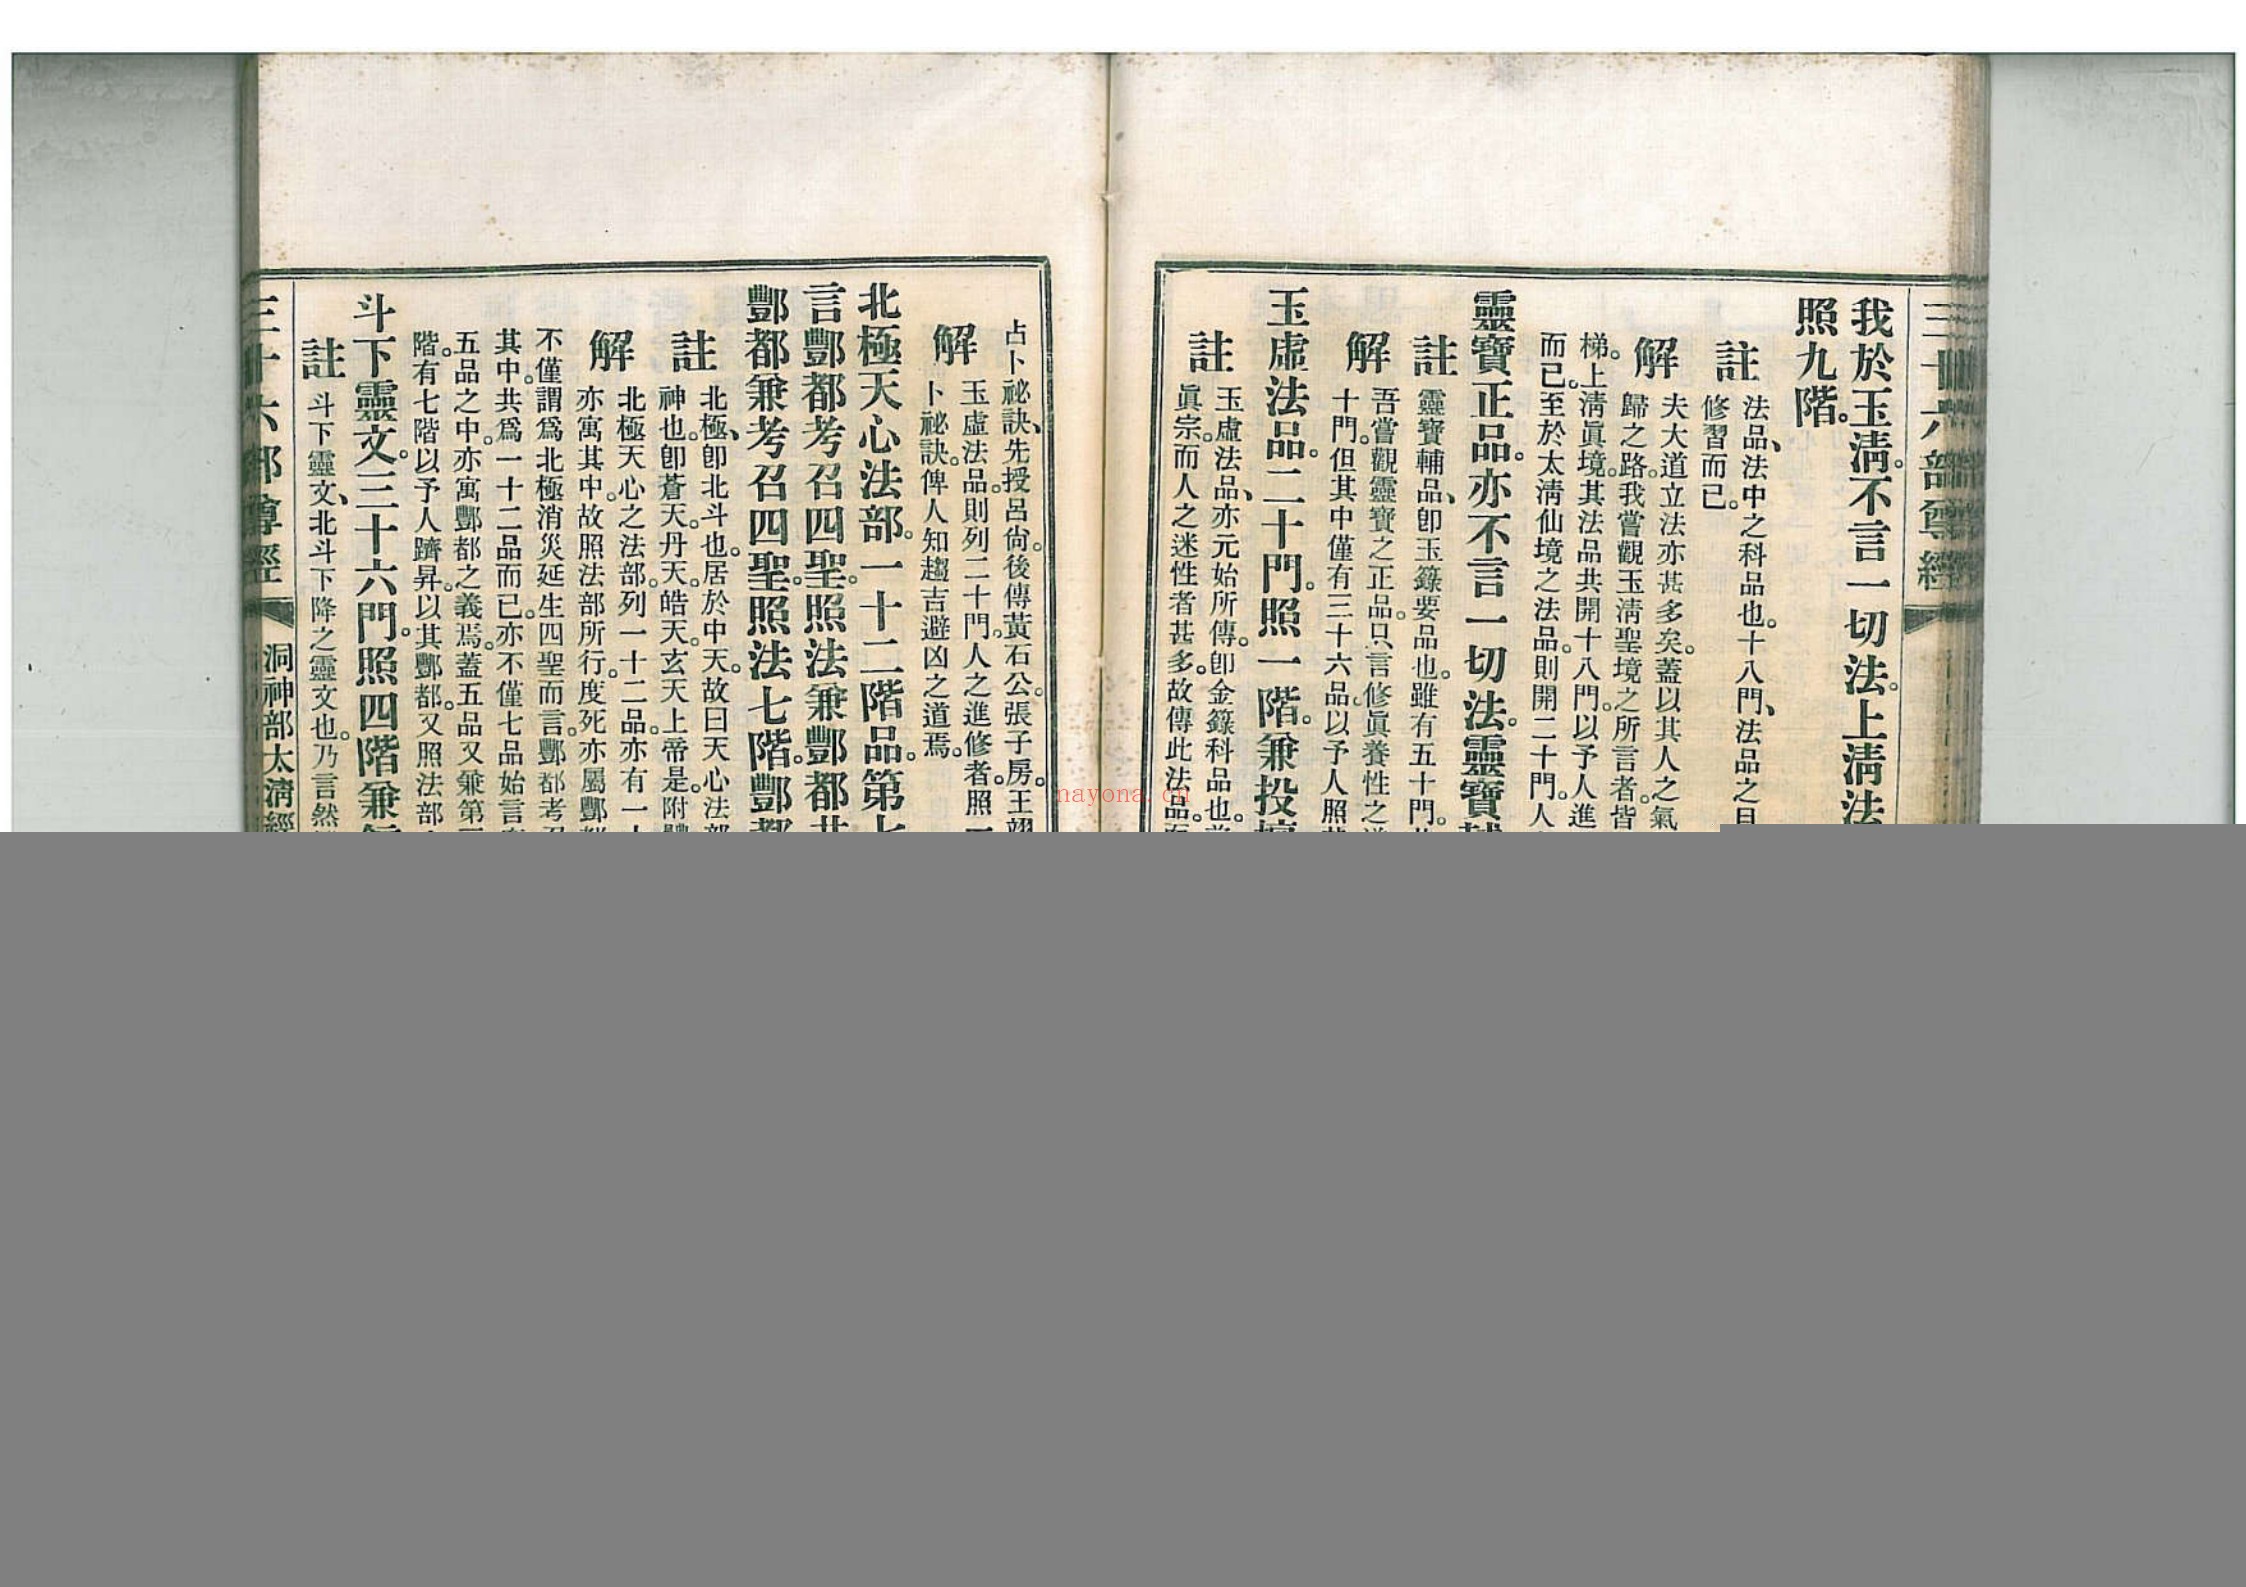 三十六部尊經
我於玉淸。不言一切法。上淸法
照九階。
註
法品、法中之科品也。十八門、法品之目
修習而已。
解
夫大道立法亦甚多矣。蓋以其人之氣
歸之路。我嘗觀玉淸聖境之所言者。皆
梯。上淸眞境。其法品共開十八門。以予人進
而已。至於太淸仙境之法品。則開二十門。人
靈寶正品。亦不言一切法。靈寶
註
靈寶輔品、卽玉籙要品也。雖有五十門。
解
吾嘗觀靈寶之正品。只言修眞養性之
十門。但其中僅有三十六品。以予人照
玉虛法品。二十門。照一階。兼投
註
玉虛法品、亦元始所傳。卽金籙科品也。
眞宗。而人之迷性者甚多。故傳此法品。
占卜祕訣、先授呂尙。後傳黃石公。張子房。王
解
玉虛法品。則列二十門。人之進修者。照
卜祕訣。俾人知趨吉避凶之道焉。
北極天心法部。一十二階品。第
言酆都考召四聖。照法兼酆都
酆都兼考召四聖。照法七階。酆
註
北極、卽北斗也。居於中天。故曰天心法
神也。卽蒼天。丹天。皓天。玄天上帝是。附
解
北極天心之法部。列一十二品。亦有一
亦寓其中。故照法部所行。度死亦屬酆
不僅謂爲北極消災延生四聖而言。酆都考
其中。共爲一十二品而已。亦不僅七品始言
五品之中。亦寓酆都之義焉。蓋五品又兼第
階。有七階以予人躋昇。以其酆都。又照法部
斗下靈文。三十六門。照四階。兼
註
斗下靈文、北斗下降之靈文也。乃言然
三十六部尊經
洞神部太淸經
nayona.cn